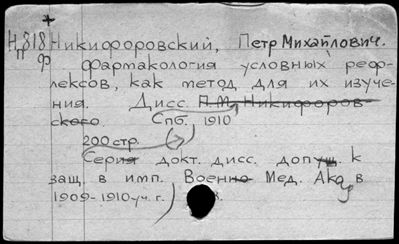 Н 818 Никифоровский, Петр Михайлович.
П Ф Фармакология условных реф-
лексов, как метод для их изуче-
ния. Дисс. П.М. Никифоров-
ского Спб. 1910
200 стр. ( )
Серия докт. дисс. допущ. к
защ. в имп. Военно Мед. Ака в
1909-1910 уч. г.